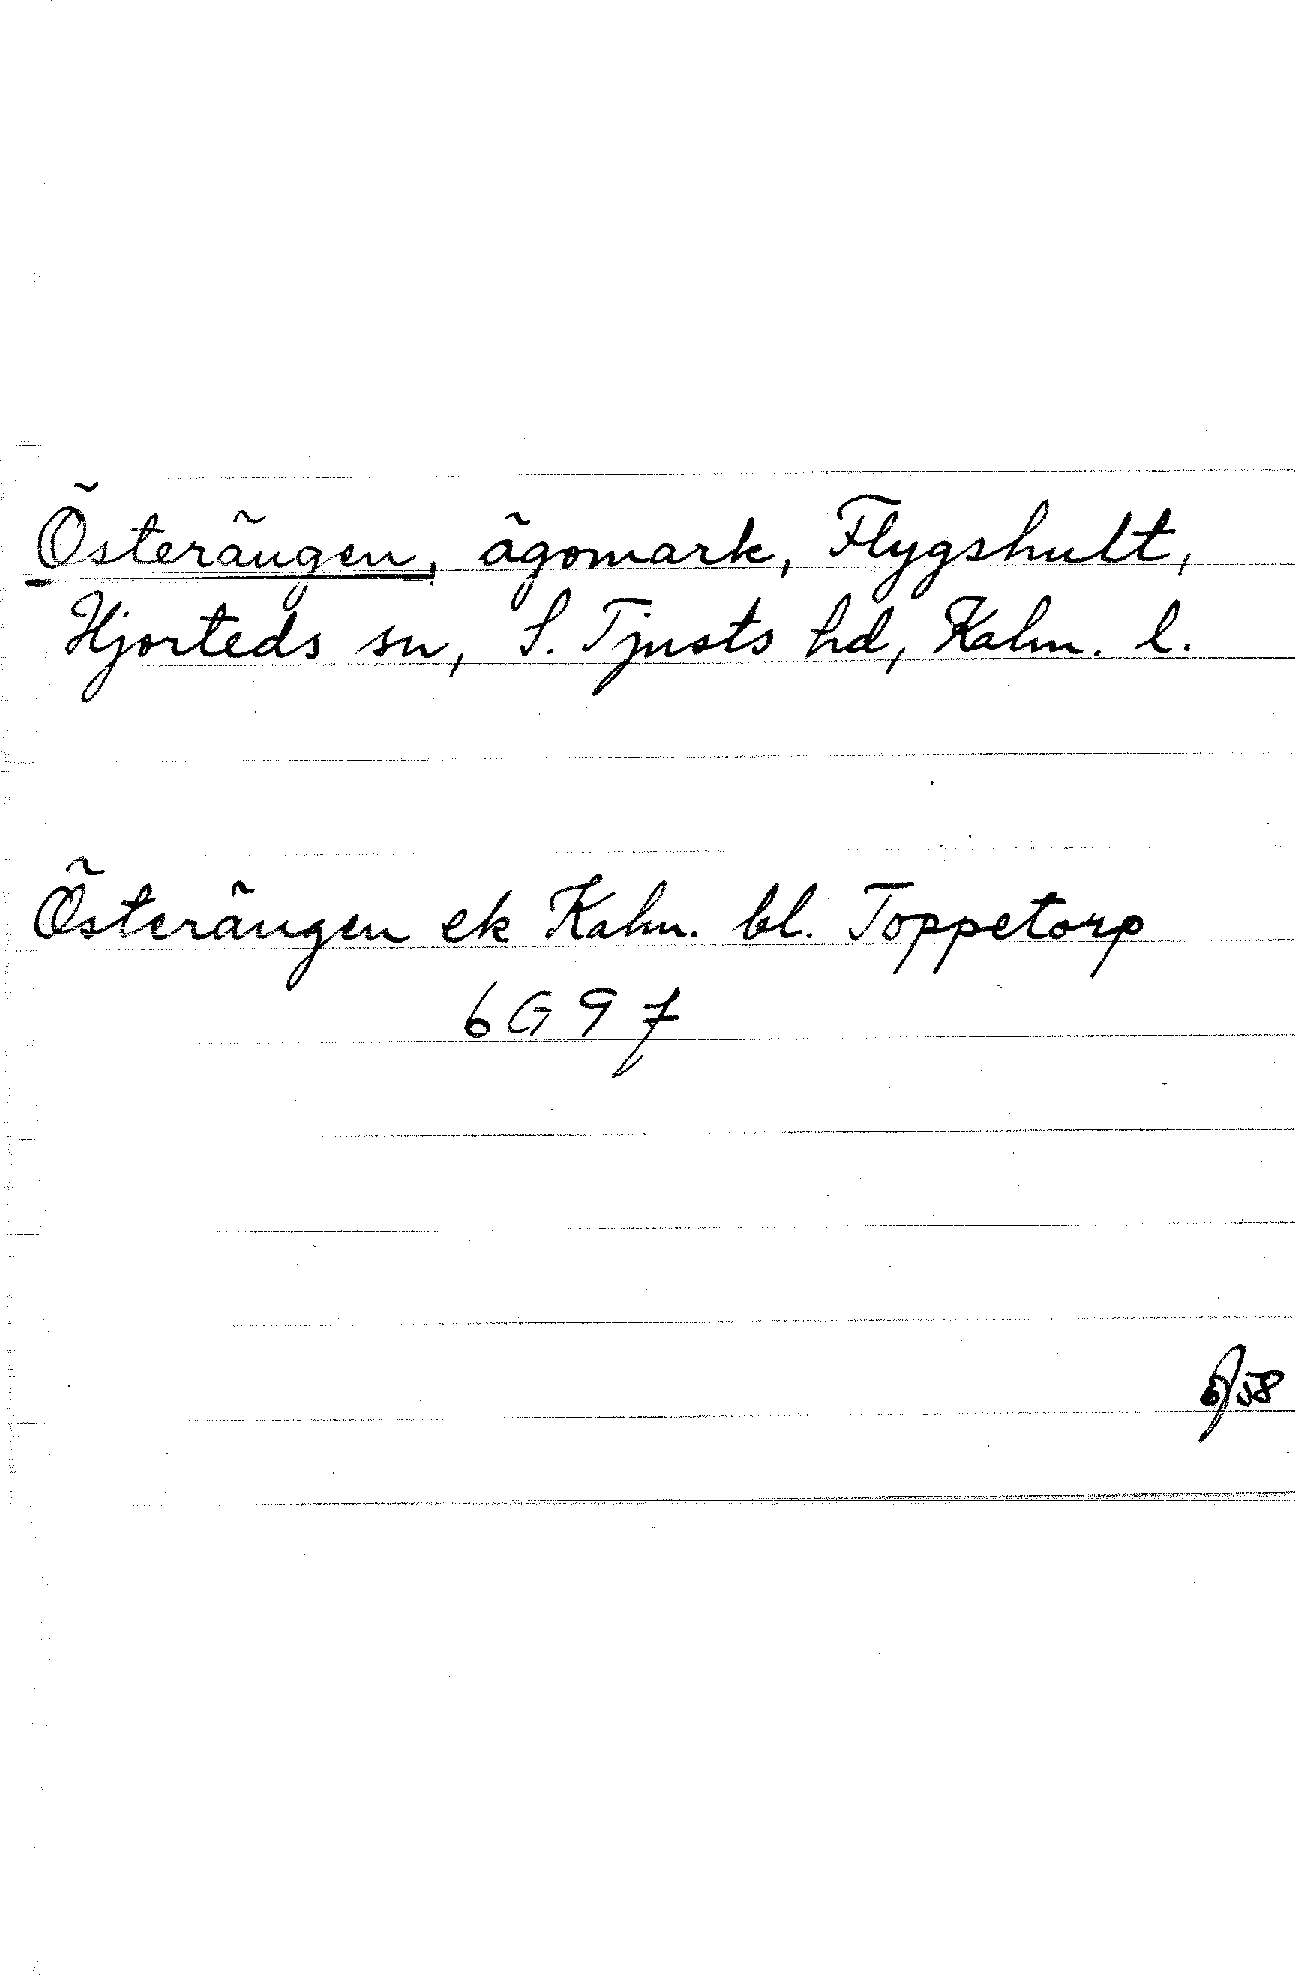 Österängen, ägomark, Flygshult,
Hjorteds sn, S. Tjusts hd, Kalm. l.
Österängen ek Kalm. bl. Toppetorp
6G 9 f
58